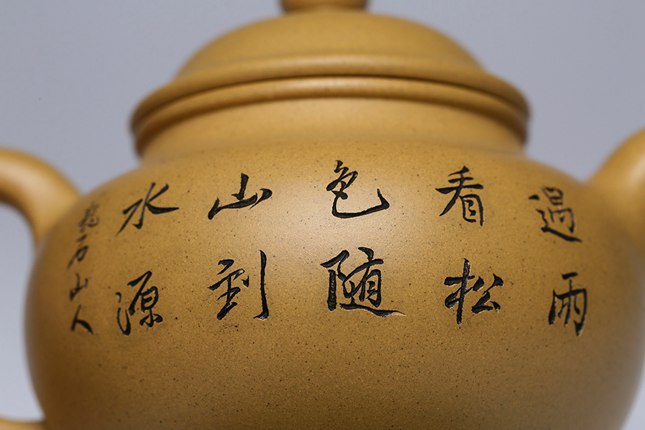 過雨
看松
色随
山到
水源
石山人